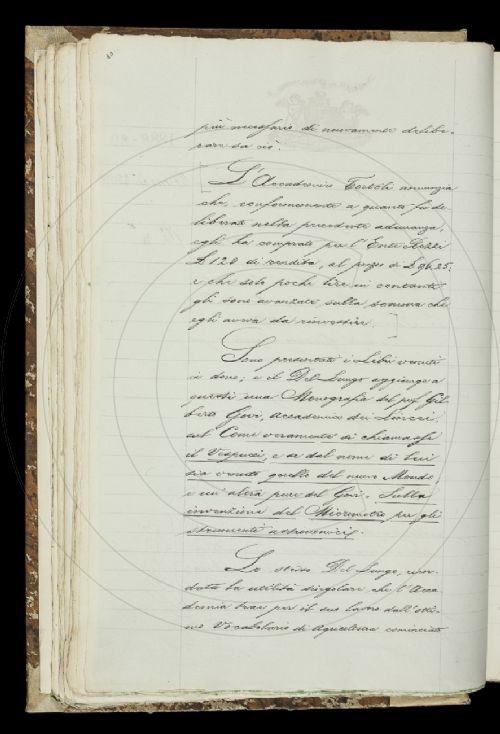 più necessario di nuovamente delibe-
rare su ciò.
L'Accademico Tortoli annunzia
che, conformemente a quanto fu de
liberato nella precedente adunanza,
egli ha comprato per l'Ente Rezzi
£ 120 di rendita, al prezzo di £ 96.25;
e che solo poche lire in contanti
gli sono avanzate sulla somma che
egli aveva da rinvestire.
Sono presentati i Libri venuti
in dono; e il Del Lungo aggiunge a
questi una Monografia del prof. Gil-
berto Govi, Accademico dei Lincei,
sul Come veramente si chiamasse
il Vespucci, e se dal nome di lui
sia venuto quello del nuovo Mondo,
e un'altra pure del Govi. Sulla
invenzione del Micrometro per gli
strumenti astronomici.
Lo stesso Del Lungo, ricor-
data la utilità singolare che l'Acca
demia trae per il suo lavoro dall'otti-
mo Vocabolario di Agricoltura cominciato